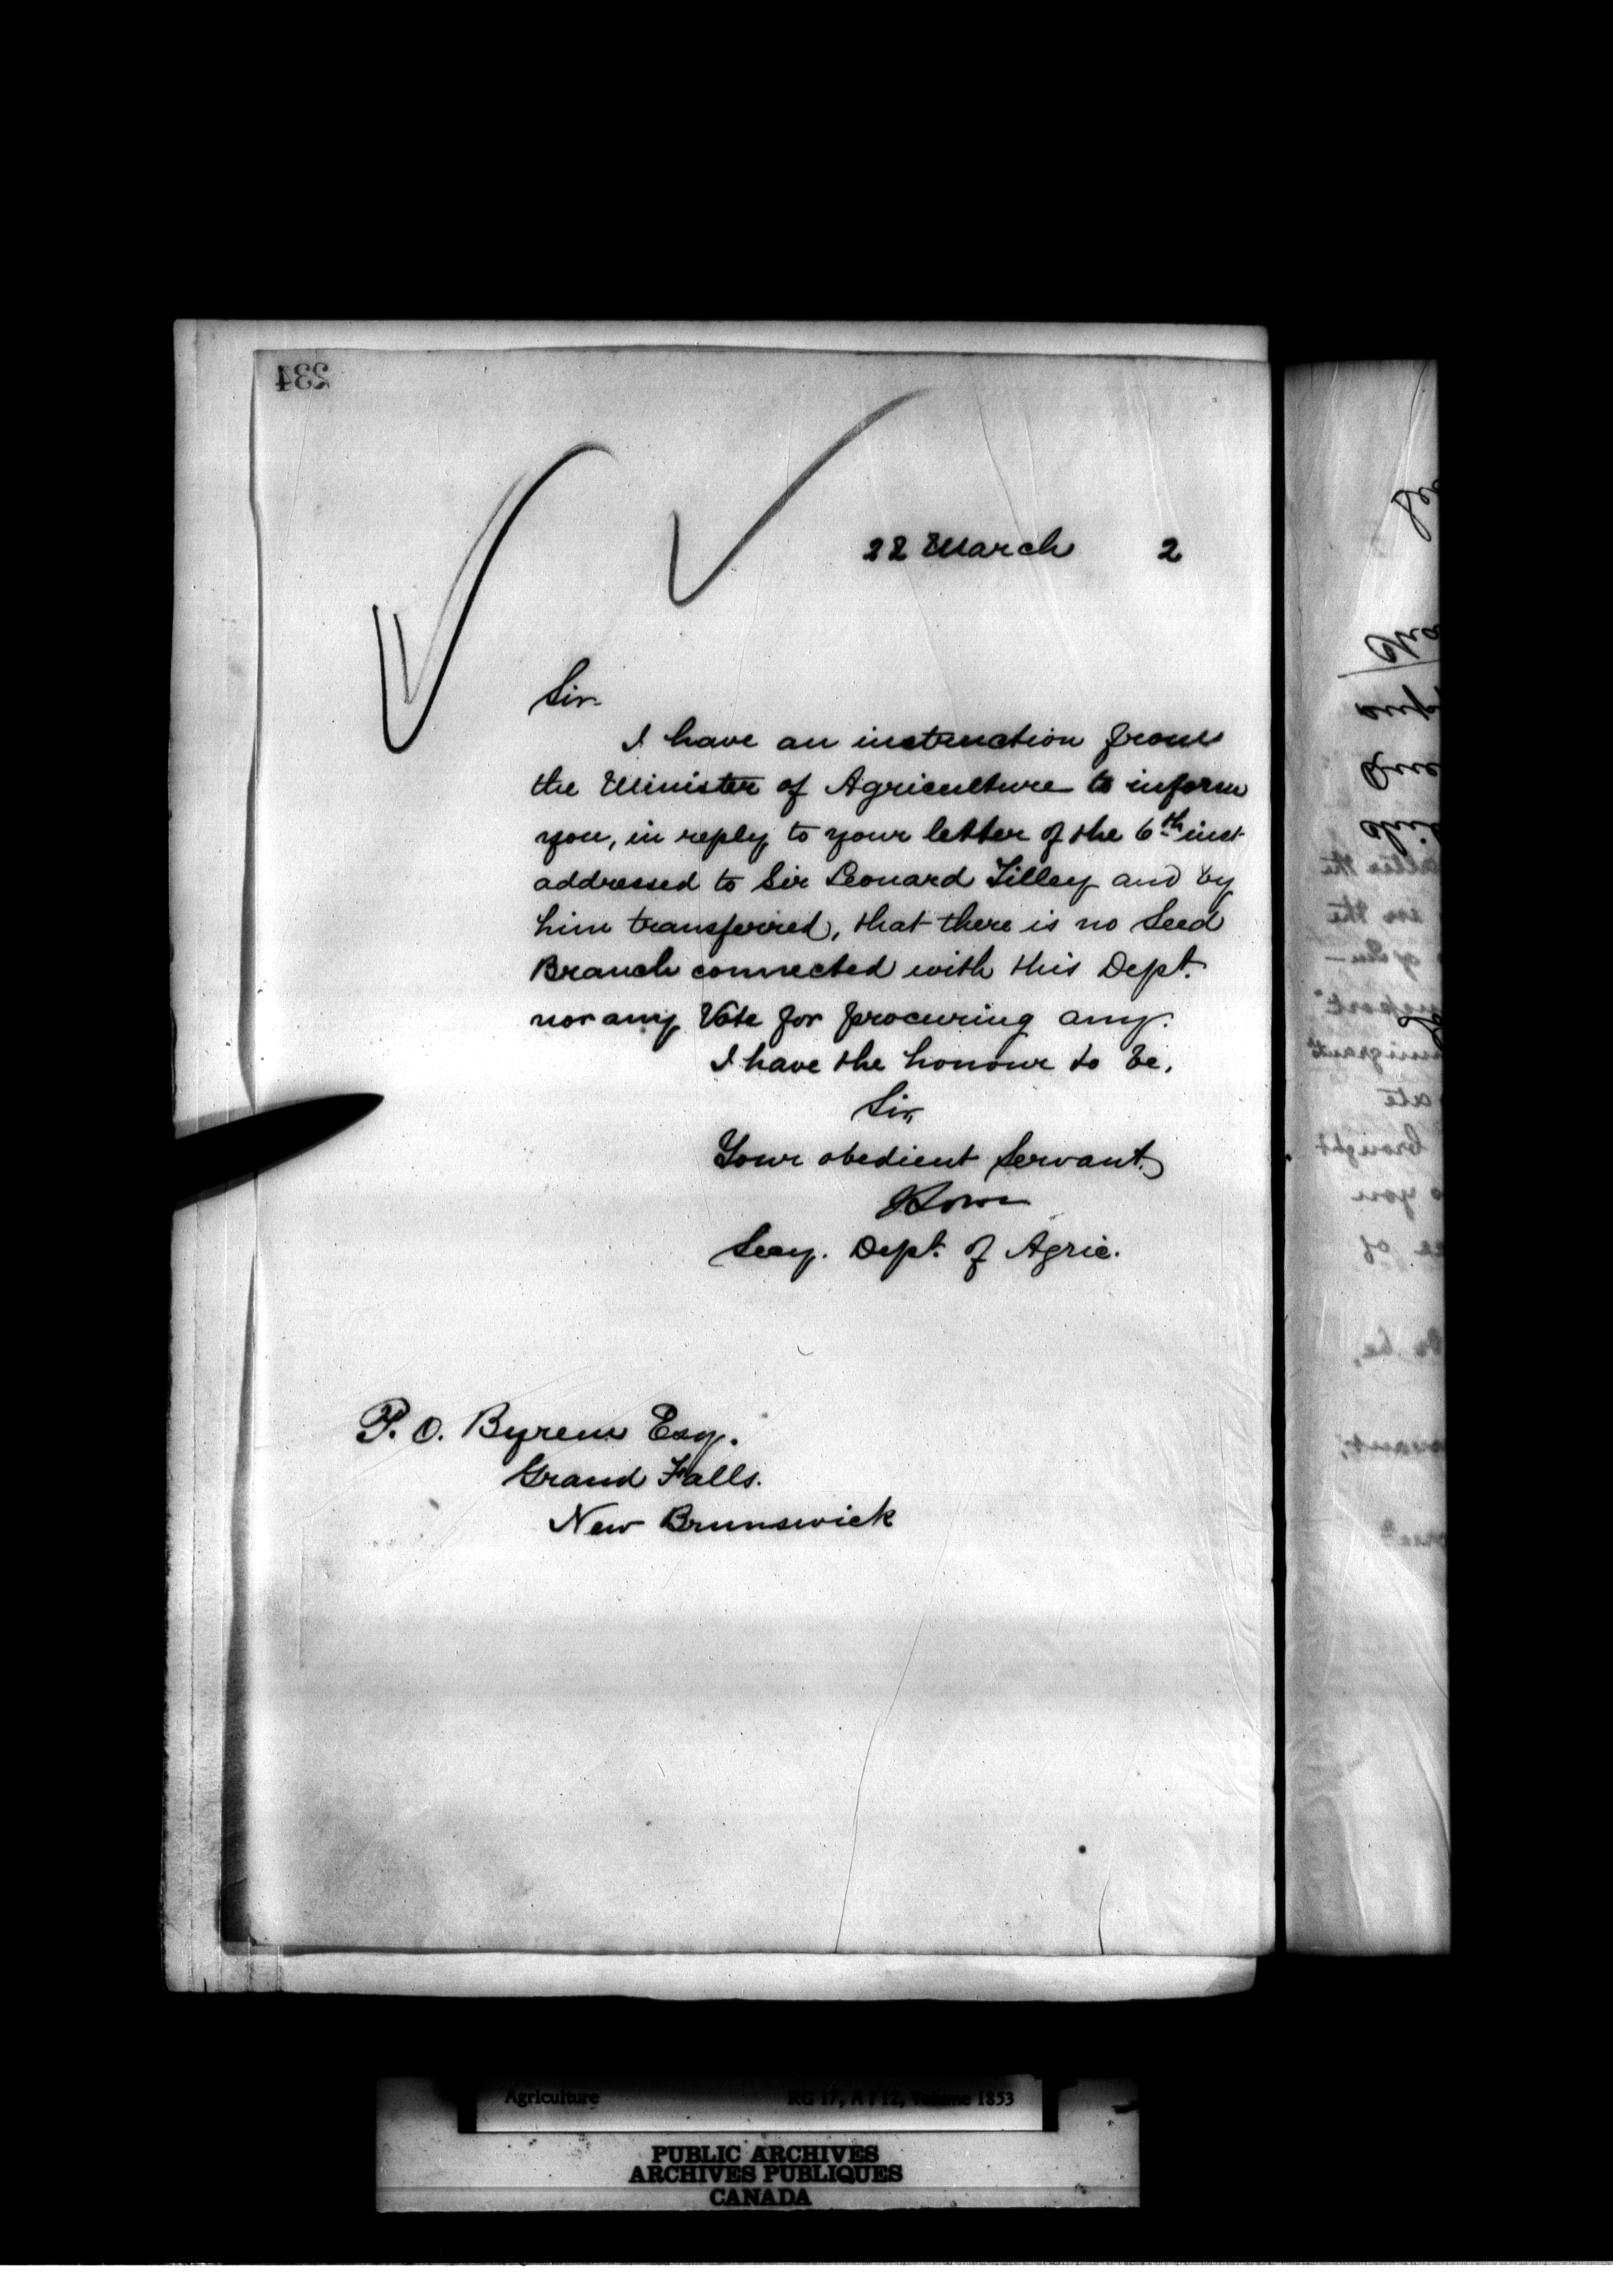 234
22 March 2
Sir.
I have an instruction from
the Minister of Agriculture to inform
you, in reply to your letter of the 6th inst
addressed to Sir Leonard Tilley and by
him transferred, that there is no Seed
Branch connected with this Dept.
nor any Vote for procuring any.
I have the honour to be,
Sir,
Your obedient Servant.
Secy. Dept. of Agric.
P. O. Byrem Esq.
Grand Falls.
New Brunswick
Agriculture RG 17, A I 12, Volume 1853
PUBLIC ARCHIVES
ARCHIVES PUBLIQUES
CANADA